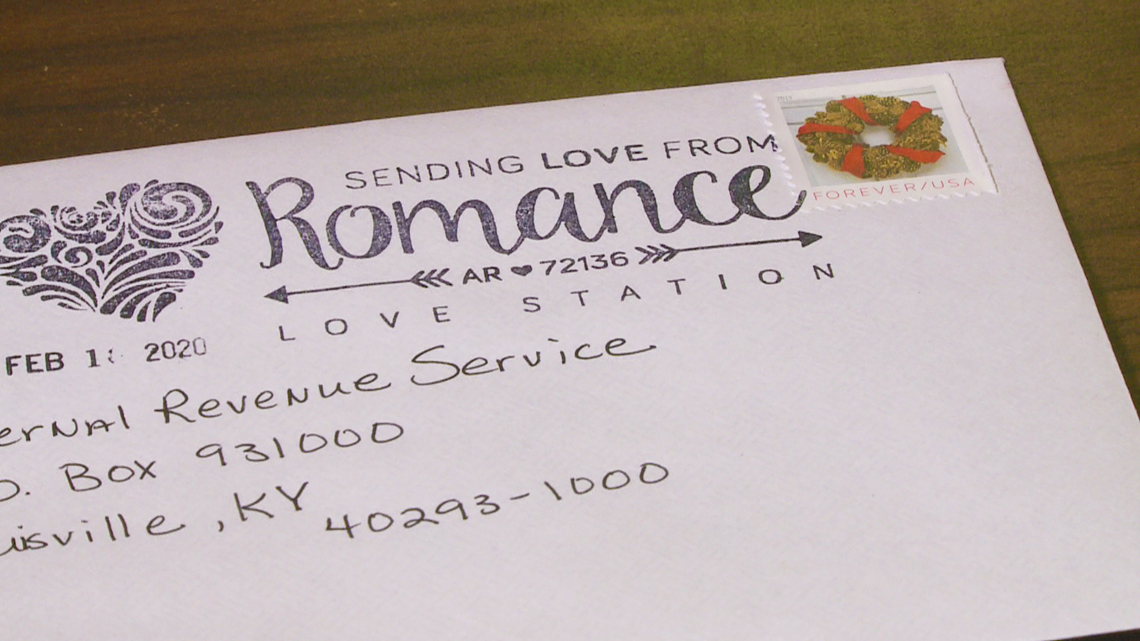 SENDING LOVE FROM
Romance
AR 72136
LOVE STATION
FOREVER/USA
FEB 2020
ernal Revenue Service
O. Box 931000
uisville, KY 40293-1000